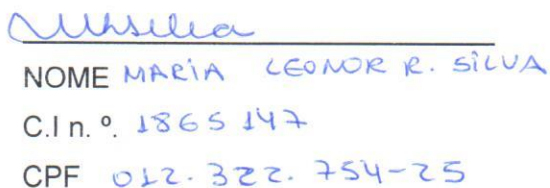 NOME MARIA LEONOR R. SILVA
C.I n. º. 1865147
CPF 012.322.754-25